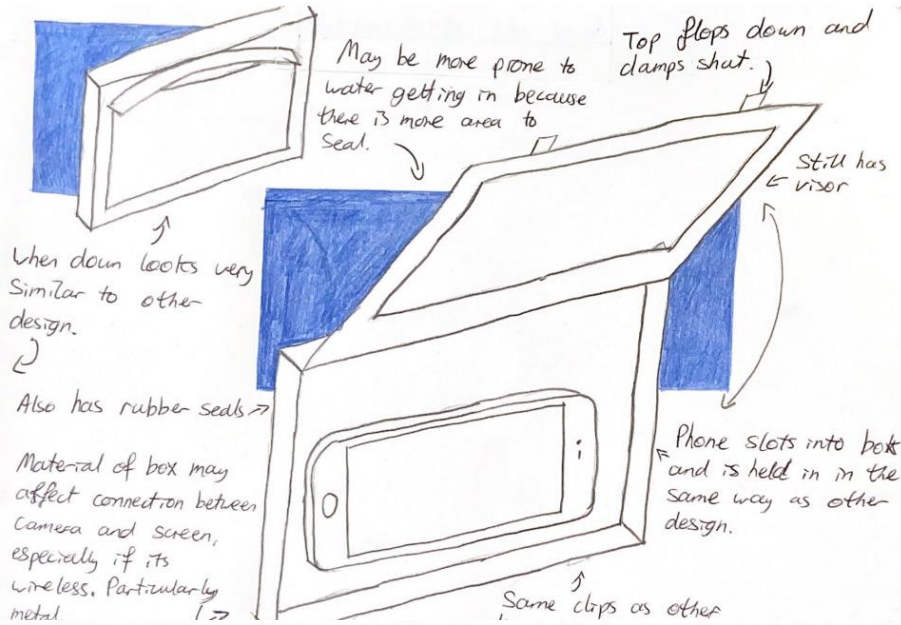 May be more prone to
water getting in because
there is more area to
seal.
Top flops down and
clamps shut.
Still has
visor
when down looks very
Similar to other
design.
Also has rubber seals
Material of box may
affect connection between
camera and screen,
especially if its
wireless. Particularly
metal
Phone slots into box
and is held in in the
same way as other
design.
Same clips as other